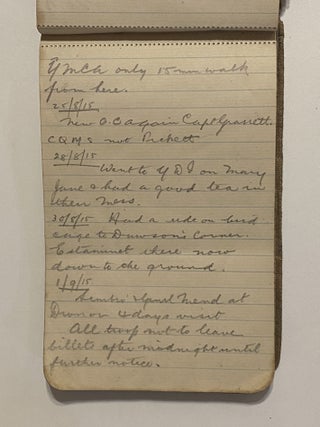 YMCA only 15 min walk
from here.
25/8/15
New O.C again Capt Grassett.
CQMS not Pickett
28/8/15
Went to YDI on Mary
Jane & had a good tea in
their Mess.
30/8/15 Had a ride on bird
cage to Dawson's Corner.
Estaminet there now
down to the ground.
1/9/15
friend at
4 days visit
All troop not to leave
billets after midnight until
further notice.